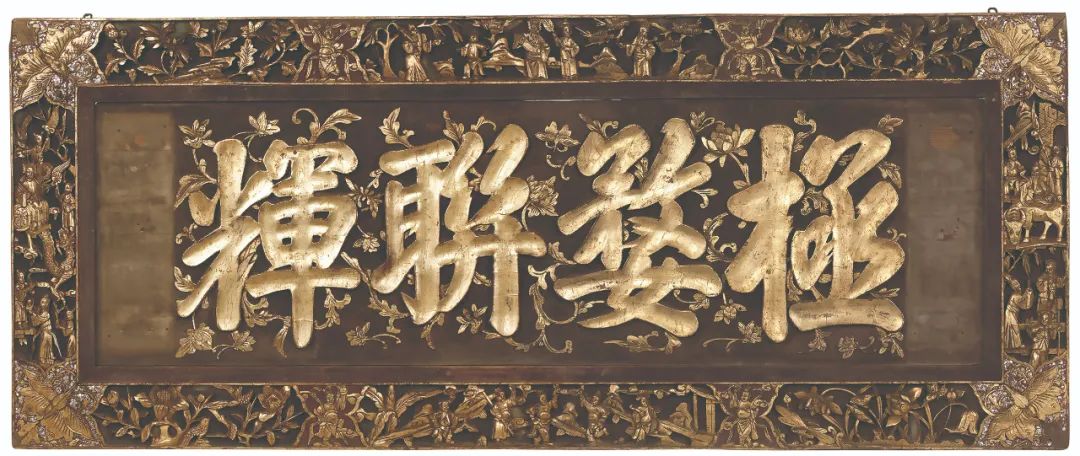 極婺聯輝